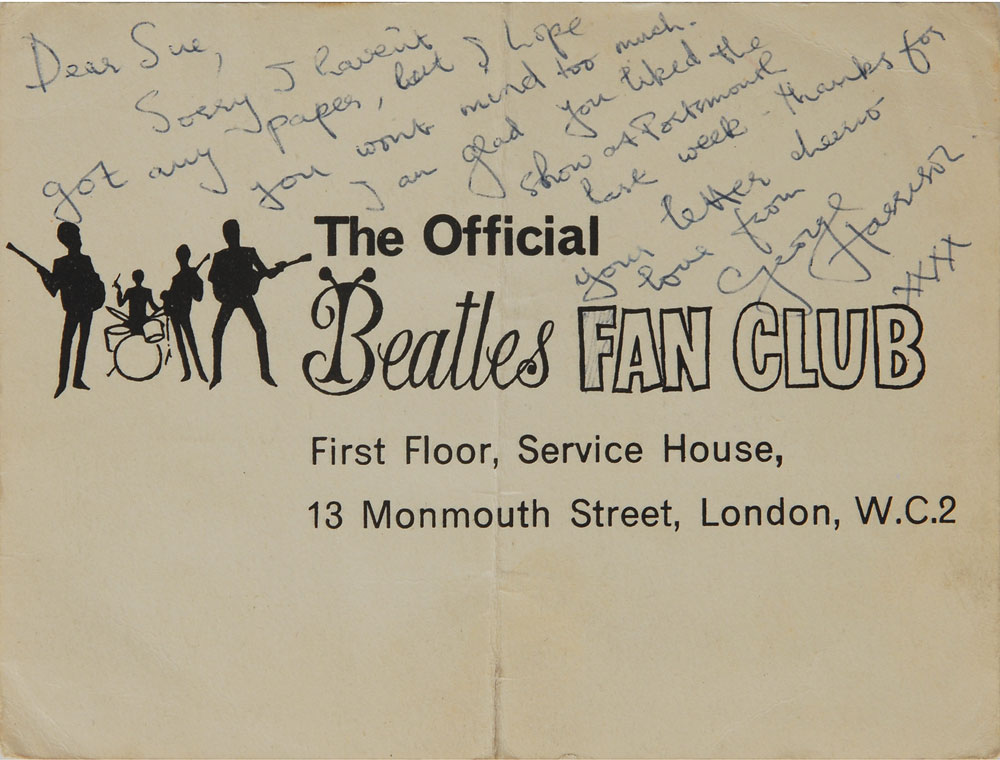 Dear Sue,
Sorry I haven't
got any paper, but I hope
you wont mind too much.
I am glad you liked the
show at Portsmouth
last week - thanks for
your letter cheerio
love from
George Harrison.
XXXX
The Official
Beatles FAN CLUB
First Floor, Service House,
13 Monmouth Street, London, W.C.2